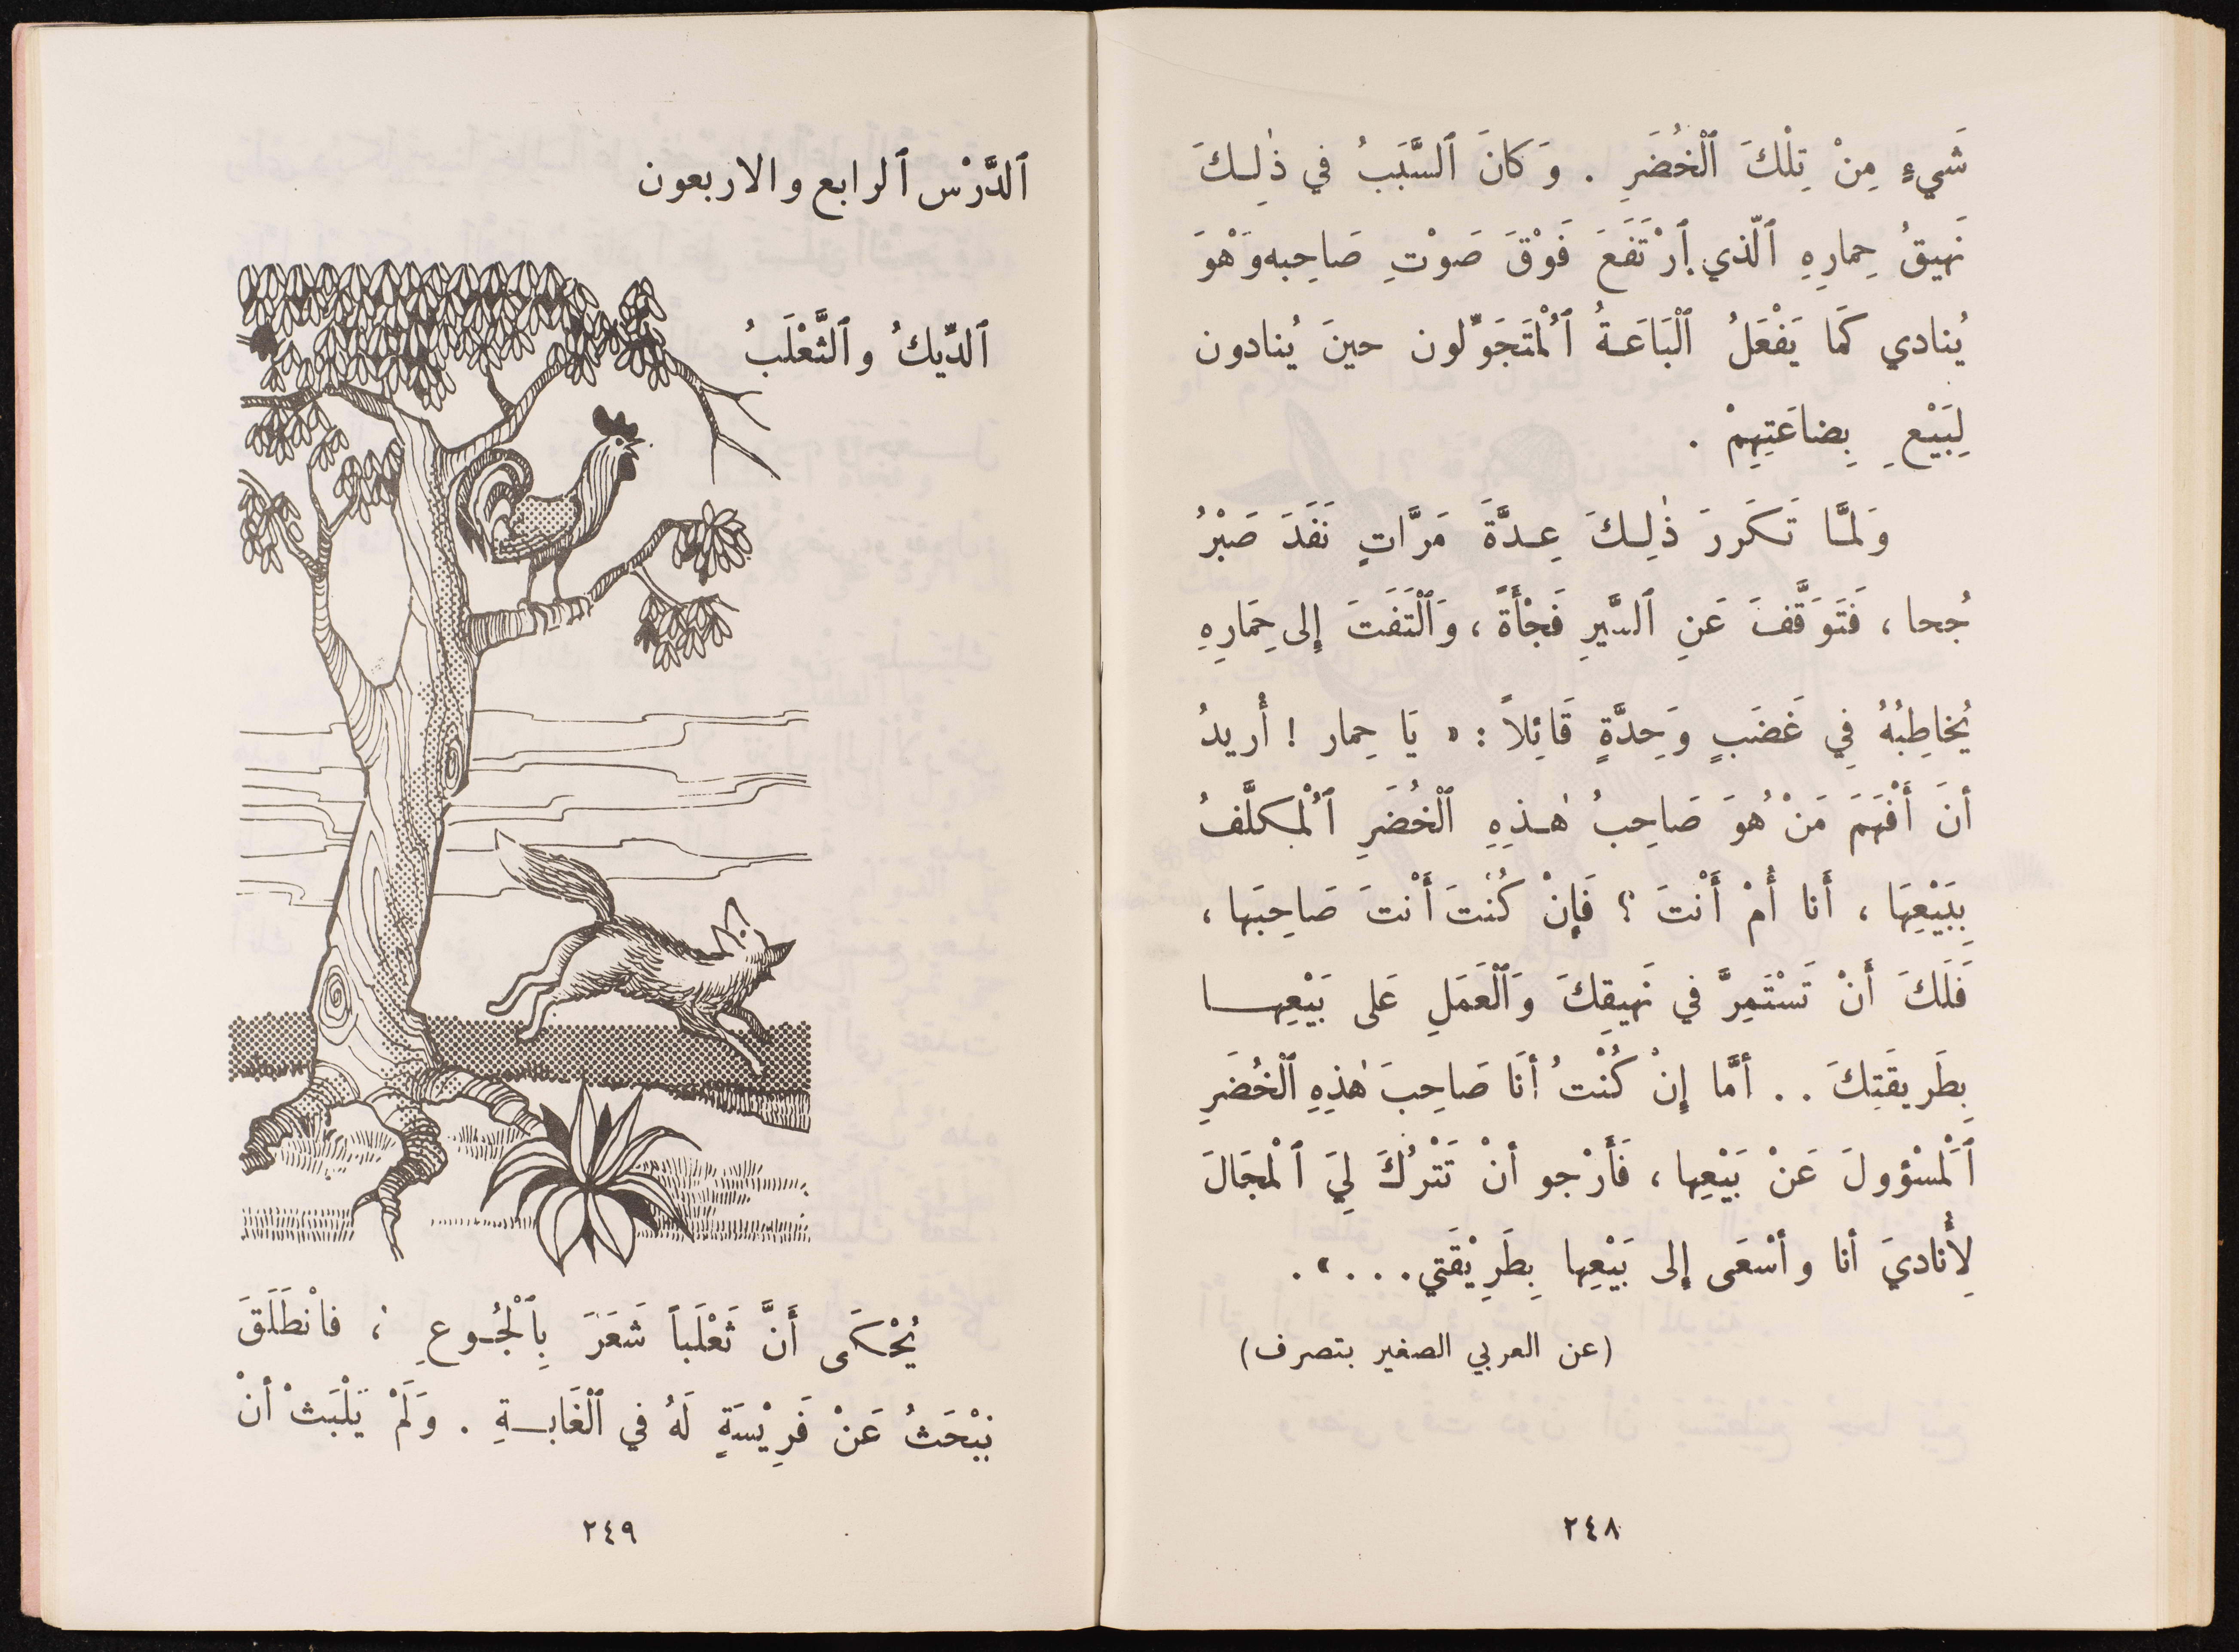 شَيءٍ مِنْ تِلْكَ ٱلْخُضَرِ . وَكانَ ٱلسَّبَبُ في ذٰلِكَ
نَهيقُ حِمارِهِ ٱلّذي ٱرْتَفَعَ فَوْقَ صَوْتِ صَاحِبه وَهْوَ
يُنادي كَمَا يَفْعَلُ ٱلْبَاعَةُ ٱلْمُتَجَوِّلون حينَ يُنادون
لِبَيْعِ بِضاعَتِهِمْ .
وَلَمَّا تَكَررَ ذٰلِكَ عِدَّةَ مَرَّاتٍ نَفَدَ صَبْرُ
جُحا ، فَتَوَقَّفَ عَنِ ٱلسَّيرِ فَجْأَةً ، وَٱلْتَفَتَ إلى حِمَارِهِ
يُخاطِبُهُ فِي غَضَبٍ وَحِدَّةٍ قَائِلاً : « يَا حِمار ! أُريدُ
أنَ أَفْهَمَ مَنْ هُوَ صَاحِبُ هٰذِهِ ٱلْخُضَرِ ٱلْمُكلَّفُ
بِبَيْعِهَا ، أَنا أَمْ أَنْتَ ؟ فَإِنْ كُنْتَ أَنْتَ صَاحِبَها ،
فَلَكَ أَنْ تَسْتَمِرَّ في نَهيقِكَ وَٱلْعَمَلِ عَلى بَيْعِها
بِطَريقَتِكَ . . أمَّا إِنْ كُنْتُ أنَا صَاحِبَ هٰذِهِ ٱلْخُضَرِ
ٱلْمَسْؤولَ عَنْ بَيْعِها ، فَأَرْجو أنْ تَتْرُكَ لِيَ ٱلْمجَالَ
لِأُناديَ أنا وأسْعَى إلى بَيْعِها بِطَرِيْقَتي . . . » .
(عن العربي الصغير بتصرف)
٢٤٨
ٱلدَّرْس ٱلرابع والاربعون
ٱلدِّيكُ وٱلثَّعْلَبُ
يُحْكَى أَنَّ ثَعْلَباً شَعَرَ بِٱلْجُوعِ ؛ فانْطَلَقَ
يَبْحَثُ عَنْ فَرِيْسَةٍ لَهُ في ٱلْغَابَةِ . وَلَمْ يَلْبَثْ أنْ
٢٤٩